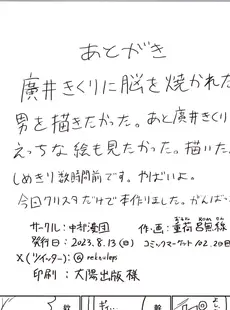 あとがき
廣井きくりに脳を焼かれた
男を描きたかった。あと廣井きくり
えっちな絵も見たかった。描いた
しめきり数時間前です。やばいよ。
今回クリスタだけで本作りました。がんばっ
サークル:中部漫団
作・画:重荷
発行日:2023.8.13(日)
コミックマーケット102.2日目
X(ツイッター):@
印刷:大陽出版様